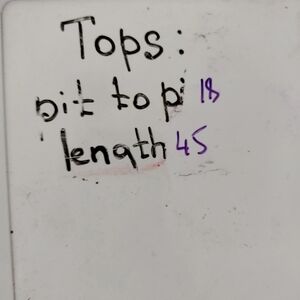 Tops:
pit to pi 18
length 45